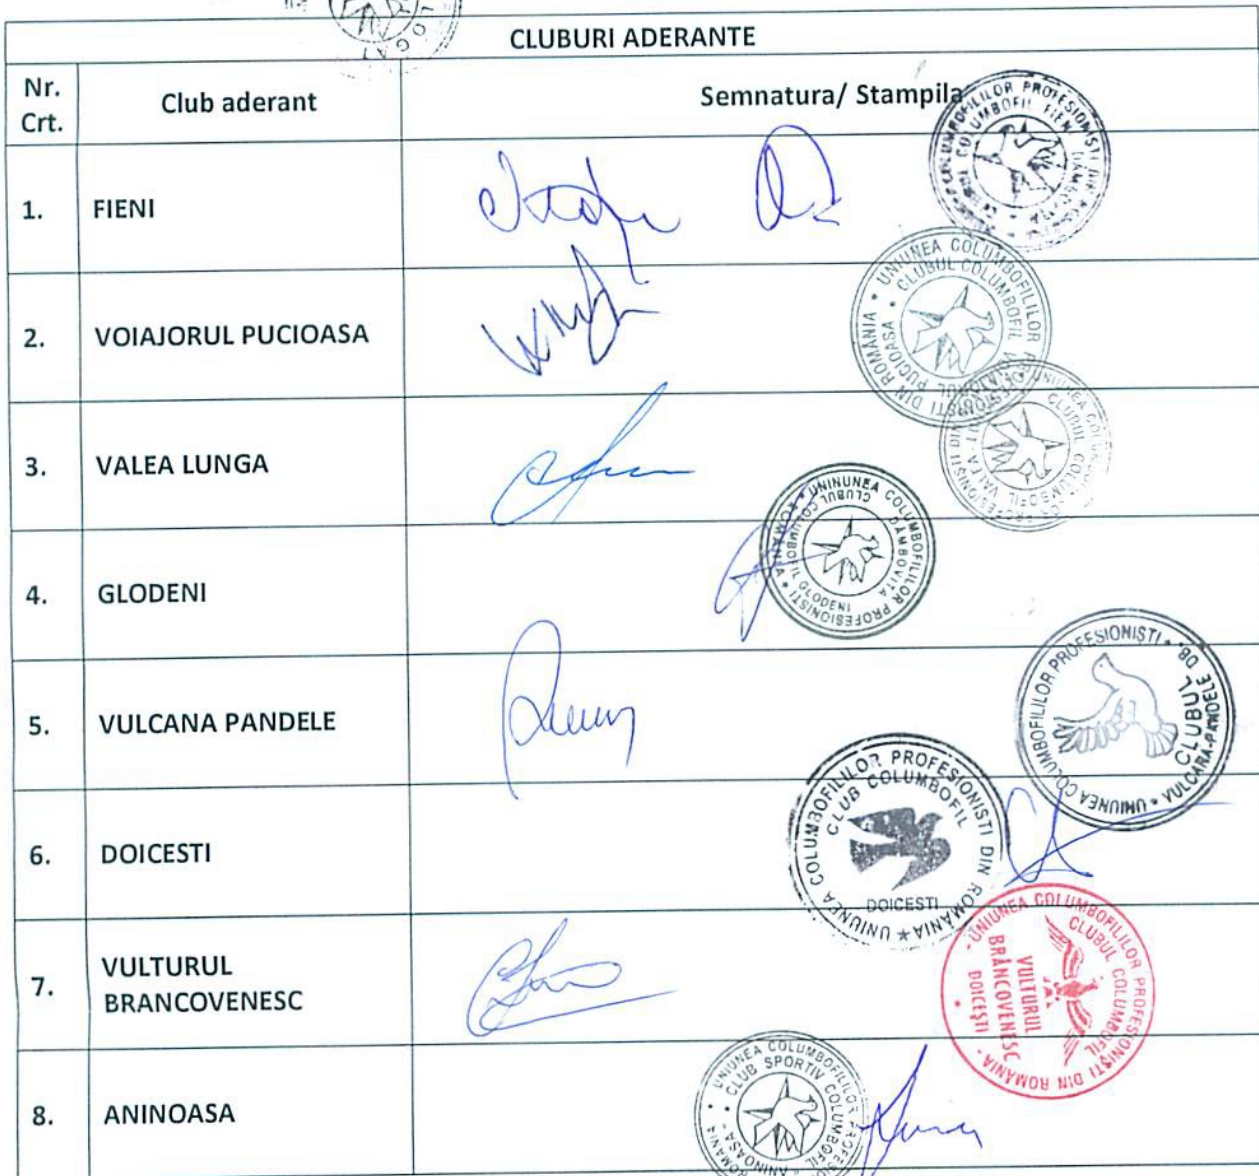 CLUBURI ADERANTE
Nr. Crt.
Club aderant
Semnatura/ Stampila
1.
FIENI
UNIUNEA COLUMBOFILILOR PROFESIONISTI DIN
COLUMBOFIL FIENI
2.
VOIAJORUL PUCIOASA
UNIUNEA COLUMBOFILILOR PROFESIONISTI DIN ROMÂNIA
CLUBUL COLUMBOFIL
PUCIOASA
3.
VALEA LUNGA
UNIUNEA
PROFESIONISTI DIN
CLUBUL COLUMBOFIL VALEA
4.
GLODENI
UNINUNEA COLUMBOFILILOR PROFESIONISTI ROMANIA
CLUBUL COLUMBOFIL GLODENI
DÂMBOVITA
5.
VULCANA PANDELE
UNIUNEA COLUMBOFILILOR PROFESIONIŞTI
CLUBUL
VULCARA-PANDELE DB
6.
DOICESTI
UNIUNEA COLUMBOFILILOR PROFESIONISTI DIN ROMANIA
CLUB COLUMBOFIL
DOICESTI
7.
VULTURUL
BRANCOVENESC
UNIUNEA COLUMBOFILILOR PROFESIONIŞTI DIN ROMÂNIA
CLUBUL COLUMBOFIL
VULTURUL
BRÂNCOVENESC
DOICEŞTI
8.
ANINOASA
UNIUNEA COLUMBOFILILOR
CLUB SPORTIV COLUMBOFIL
ANINOASA